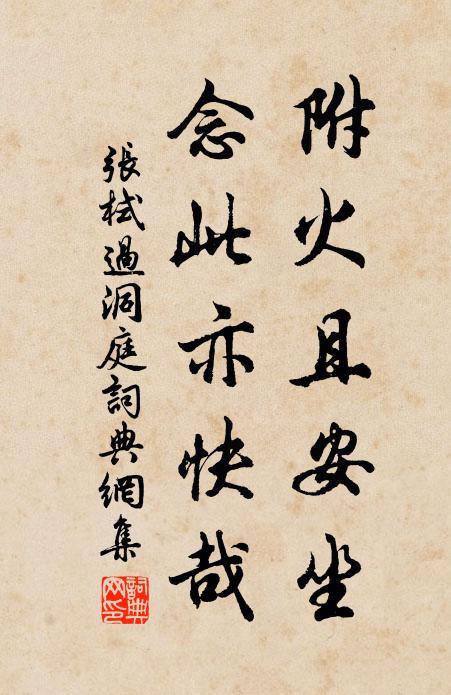 附火且安坐
念此亦快哉
張栻過洞庭詞典網集
詞典網印